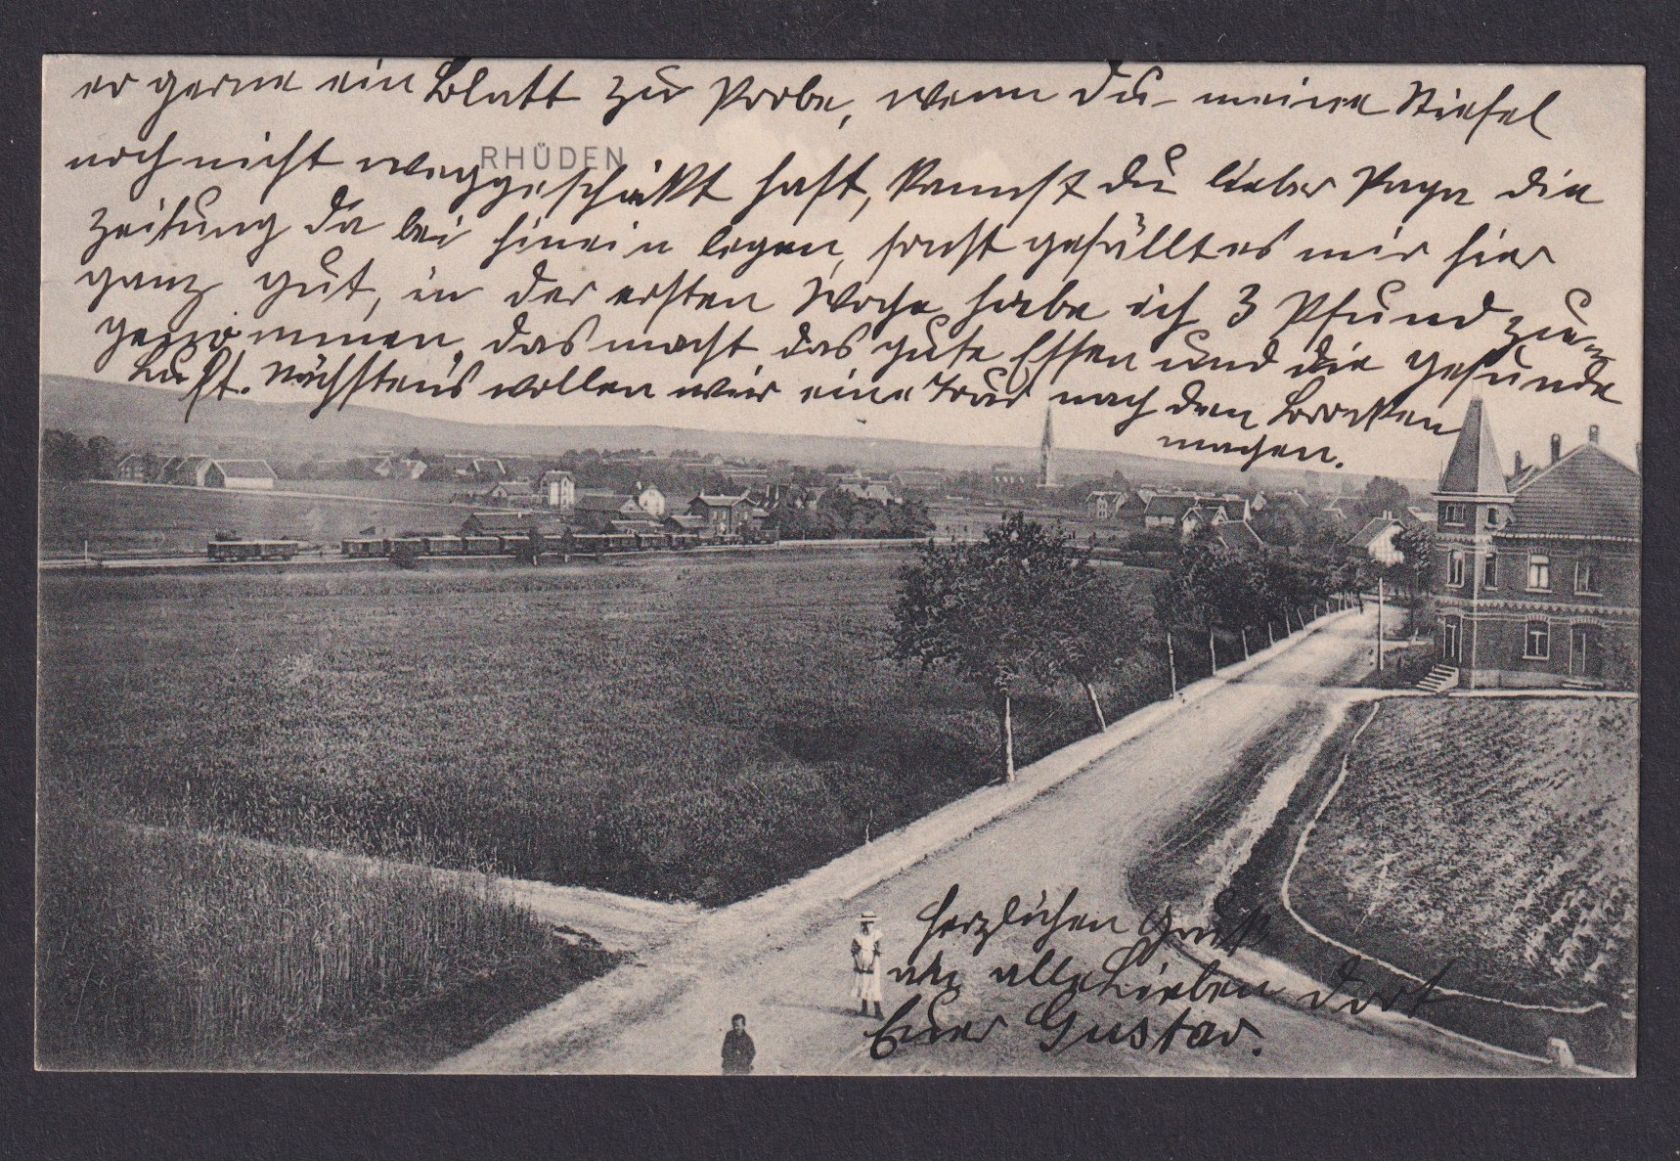 er gerne ein Blatt zur Probe, wenn Du meine Stiefel
RHÜDEN
noch nicht weggeschickt hast, kannst du lieber Papa die
Zeitung da bei hinein legen, sonst gefällt es mir hier
ganz gut, in der ersten Woche habe ich 3 Pfund zu-
genommen, das macht das gute Essen und die gesunde
Luft. Nächstens wollen wir eine Tour nach den Brocken
machen.
Herzlichen Gruß
an alle Lieben dort
Euer Gustav.